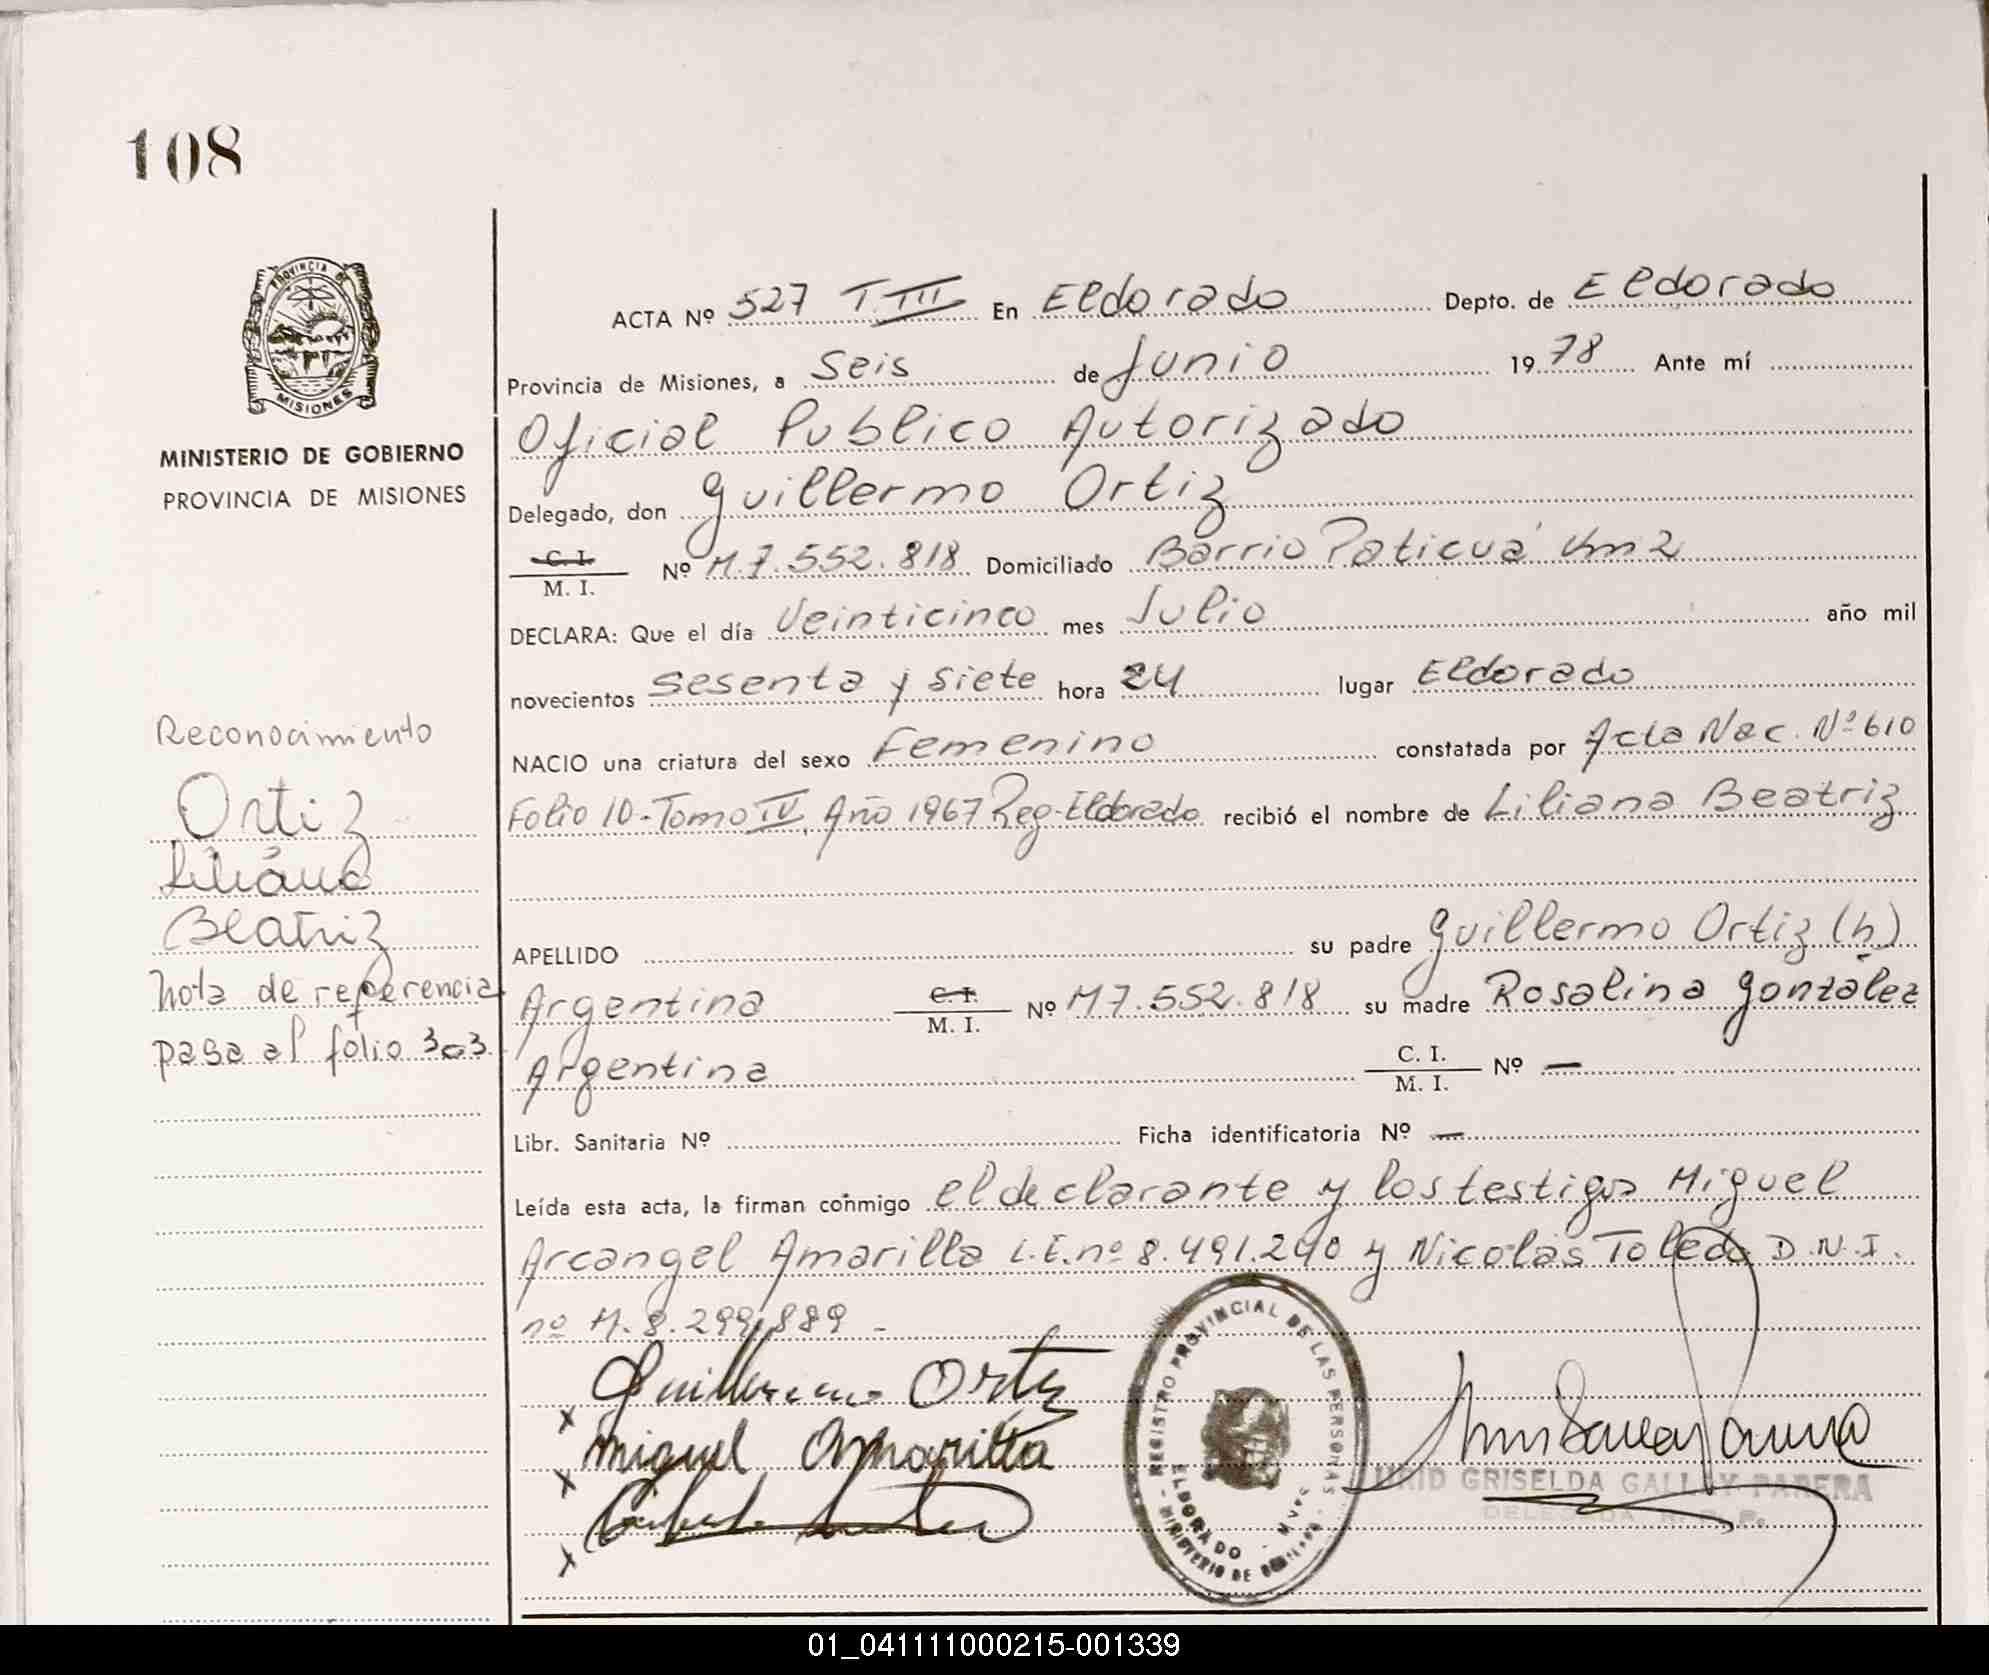 108
PROVINCIA DE
MISIONES
MINISTERIO DE GOBIERNO
PROVINCIA DE MISIONES
Reconocimiento
Ortiz
Liliana
Beatriz
Nota de referencia
pasa al folio 303
ACTA Nº 527 T. III En Eldorado Depto. de Eldorado
Provincia de Misiones, a Seis de Junio 1978 Ante mí
Oficial Publico Autorizado
Delegado, don Guillermo Ortiz
C. I.
M. I. Nº M7.552.818 Domiciliado Barrio Paticuá Km2
DECLARA: Que el día Veinticinco mes Julio año mil
novecientos sesenta y siete hora 24 lugar Eldorado
NACIO una criatura del sexo Femenino constatada por Acta Nac. Nº 610
Folio 10-Tomo IV, Año 1967 Reg-Eldorado recibió el nombre de Liliana Beatriz
APELLIDO su padre Guillermo Ortiz (h)
Argentina C. I. M. I. Nº M7.552.818 su madre Rosalina González
Argentina C. I. M. I. Nº —
Libr. Sanitaria Nº Ficha identificatoria Nº —
Leída esta acta, la firman conmigo el declarante y los testigos Miguel
Arcangel Amarilla L.E. nº 8.491.240 y Nicolás Toledo D.N.I.
nº M.8.299.889 -
Guillermo Ortiz
x
Miguel Amarilla
x
x
REGISTRO PROVINCIAL DE LAS PERSONAS
ELDORADO
MINISTERIO DE
GRISELDA GALLAY PARERA
DELEGADA R. P. P.
01_041111000215-001339